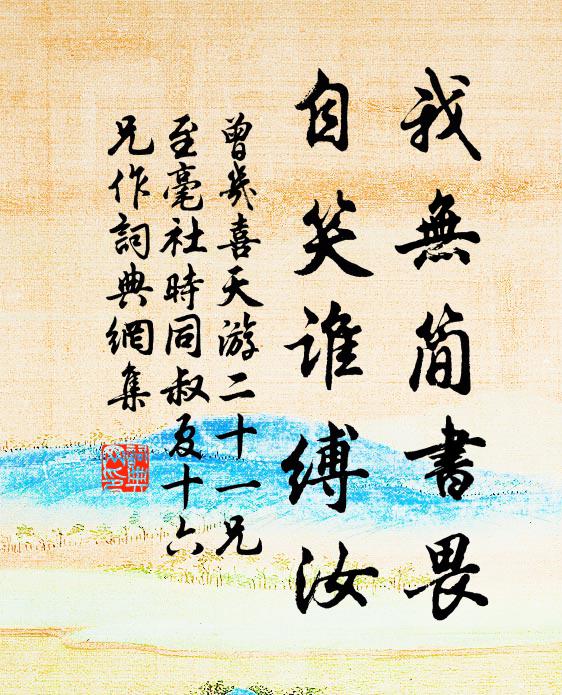 我無簡書畏
自笑誰縛汝
曾幾喜天游二十一兄
至毫社時同叔及十六
兄作詞典網集